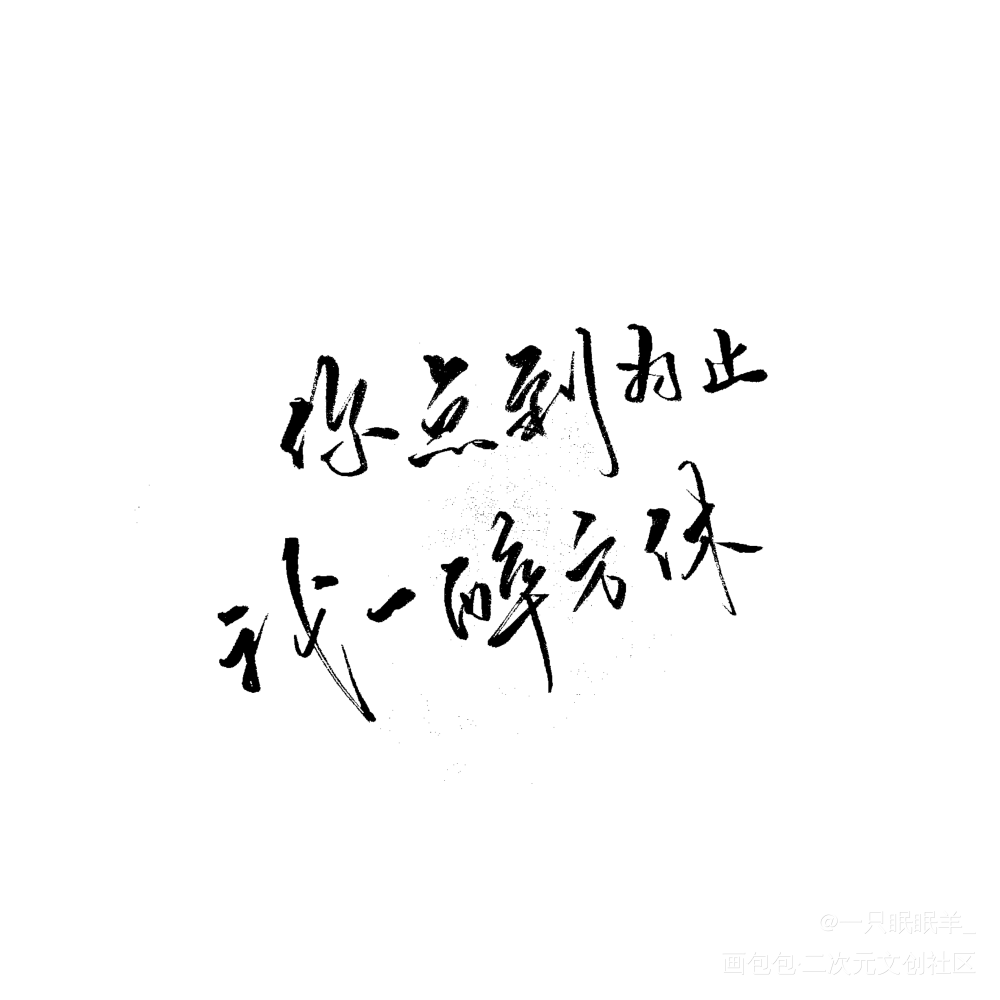 你点到为止
我一醉方休
@一只眠眠羊_
画包包·二次元文创社区